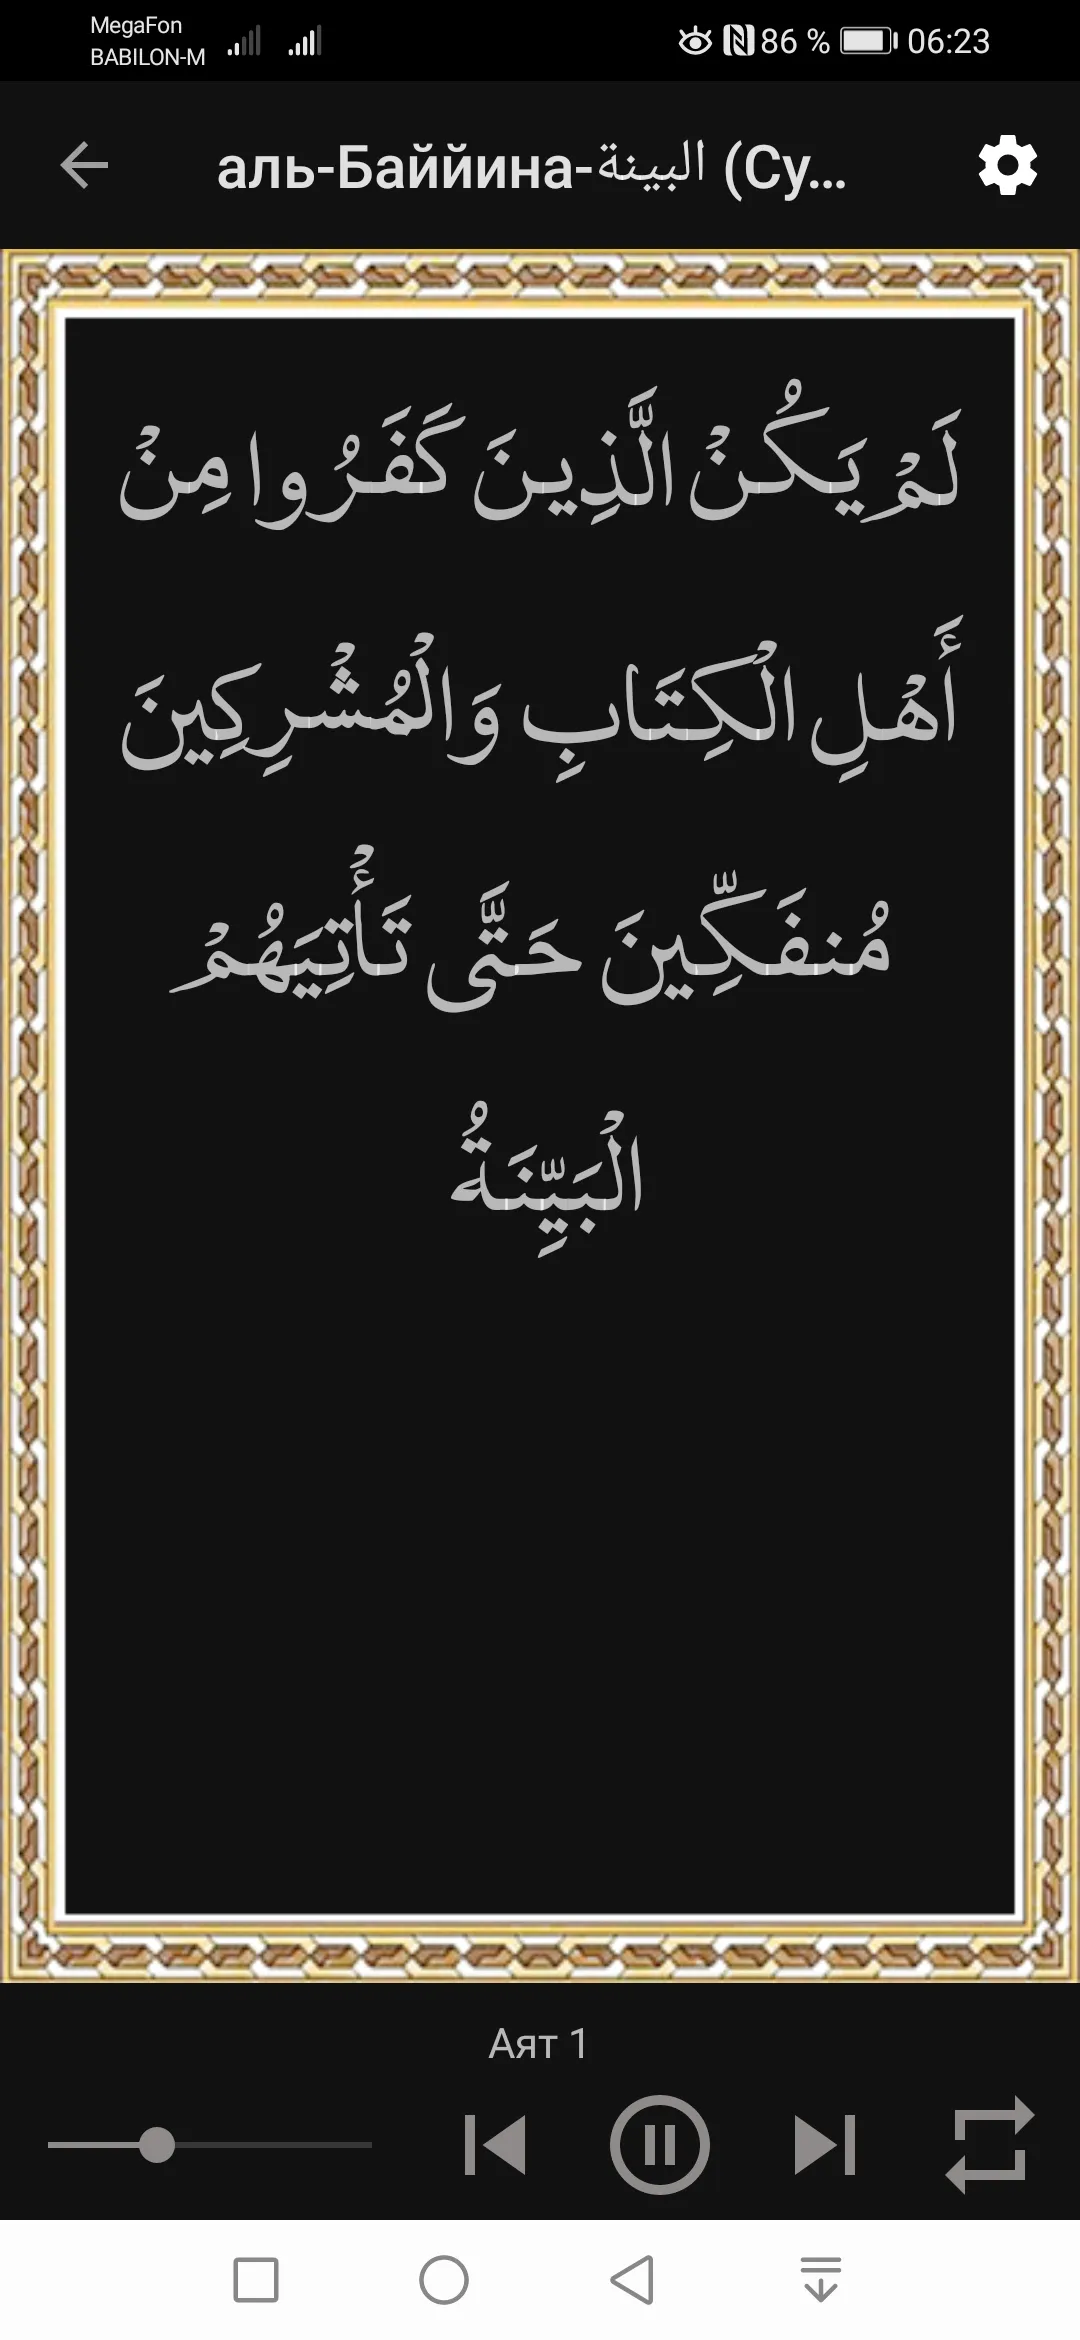 MegaFon
BABILON-M
86 %
06:23
аль-Баййина-البينة (Су...
لَمْ يَكُنْ الَّذِينَ كَفَرُوا مِنْ
أَهْلِ الْكِتَابِ وَالْمُشْرِكِينَ
مُنفَكِّينَ حَتَّى تَأْتِيَهُمْ
الْبَيِّنَةُ
Аят 1